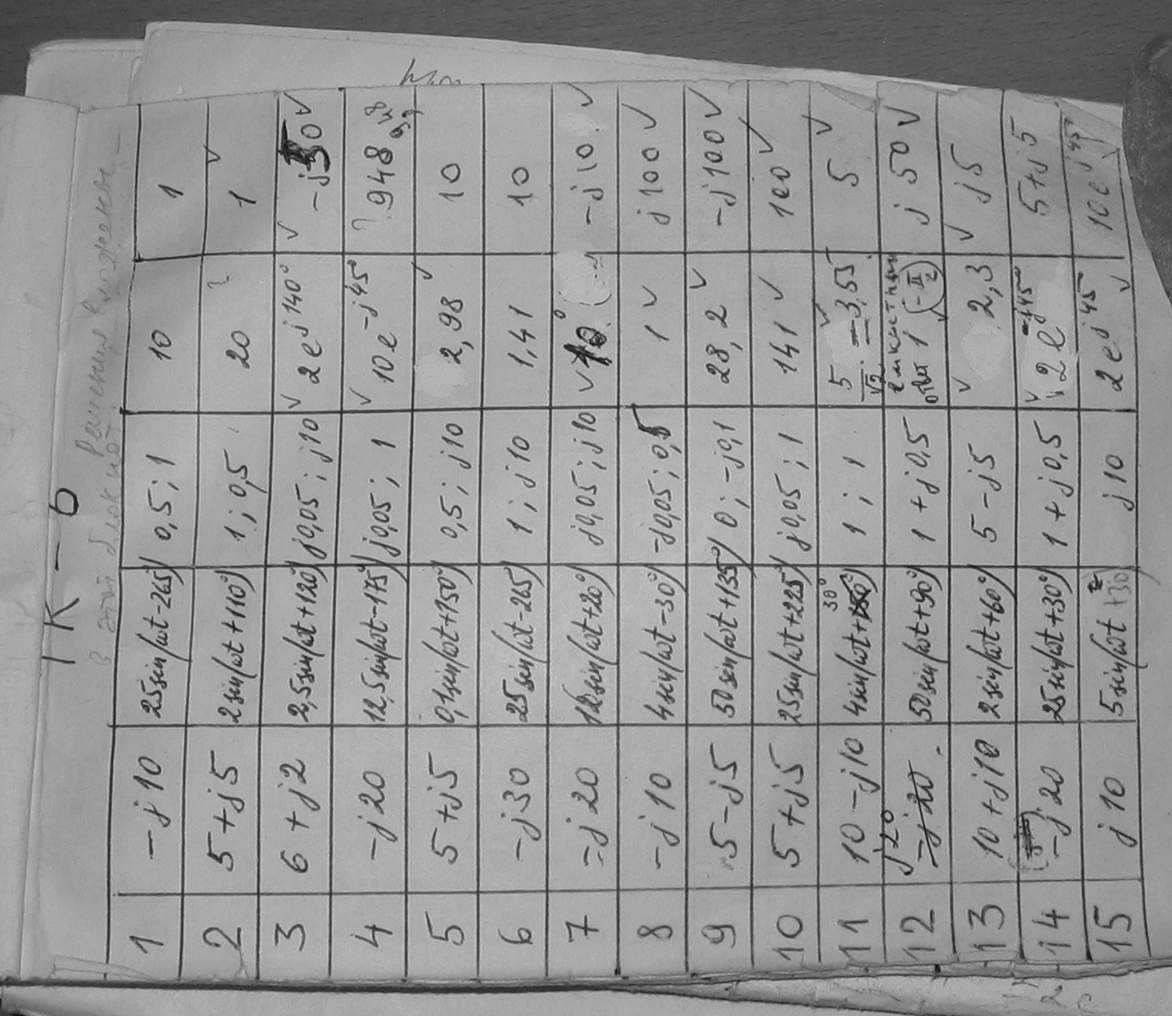 К – 6
решения
1 –j10 25sin(ωt-265°) 0,5; 1 10 1
2 5+j5 2sin(ωt+110°) 1; 0,5 20 ? 1 √
3 6+j2 2,5sin(ωt+120°) j0,05; j10 √ 2e^{j140°} √ –j50 √
4 –j20 12,5sin(ωt-175°) j0,05; 1 √ 10e^{-j45°} ? 948
5 5+j5 0,1sin(ωt+150°) 0,5; j10 2,98 √ 10
6 –j30 25sin(ωt-265°) 1; j10 1,41 10
7 –j20 12sin(ωt+20°) j0,05; j10 √ 10 –j10 √
8 –j10 4sin(ωt-30°) -j0,05; 0,5 1 √ j100 √
9 5–j5 50sin(ωt+135°) 0; -j0,1 28,2 √ –j100 √
10 5+j5 25sin(ωt+225°) j0,05; 1 141 √ 100 √
11 10–j10 4sin(ωt+30°) 1; 1 5/√2 = 3,55 √ 5 √
12 j20 50sin(ωt+90°) 1+j0,5 емкостный ответ 1 (-π/2) j50 √
13 10+j10 2sin(ωt+60°) 5–j5 √ 2,3 √ j5
14 –j20 25sin(ωt+30°) 1+j0,5 √ 2e^{-j45°} 5+j5
15 j10 5sin(ωt+30 j10 2e^{j45} √ 10e^{j45°}